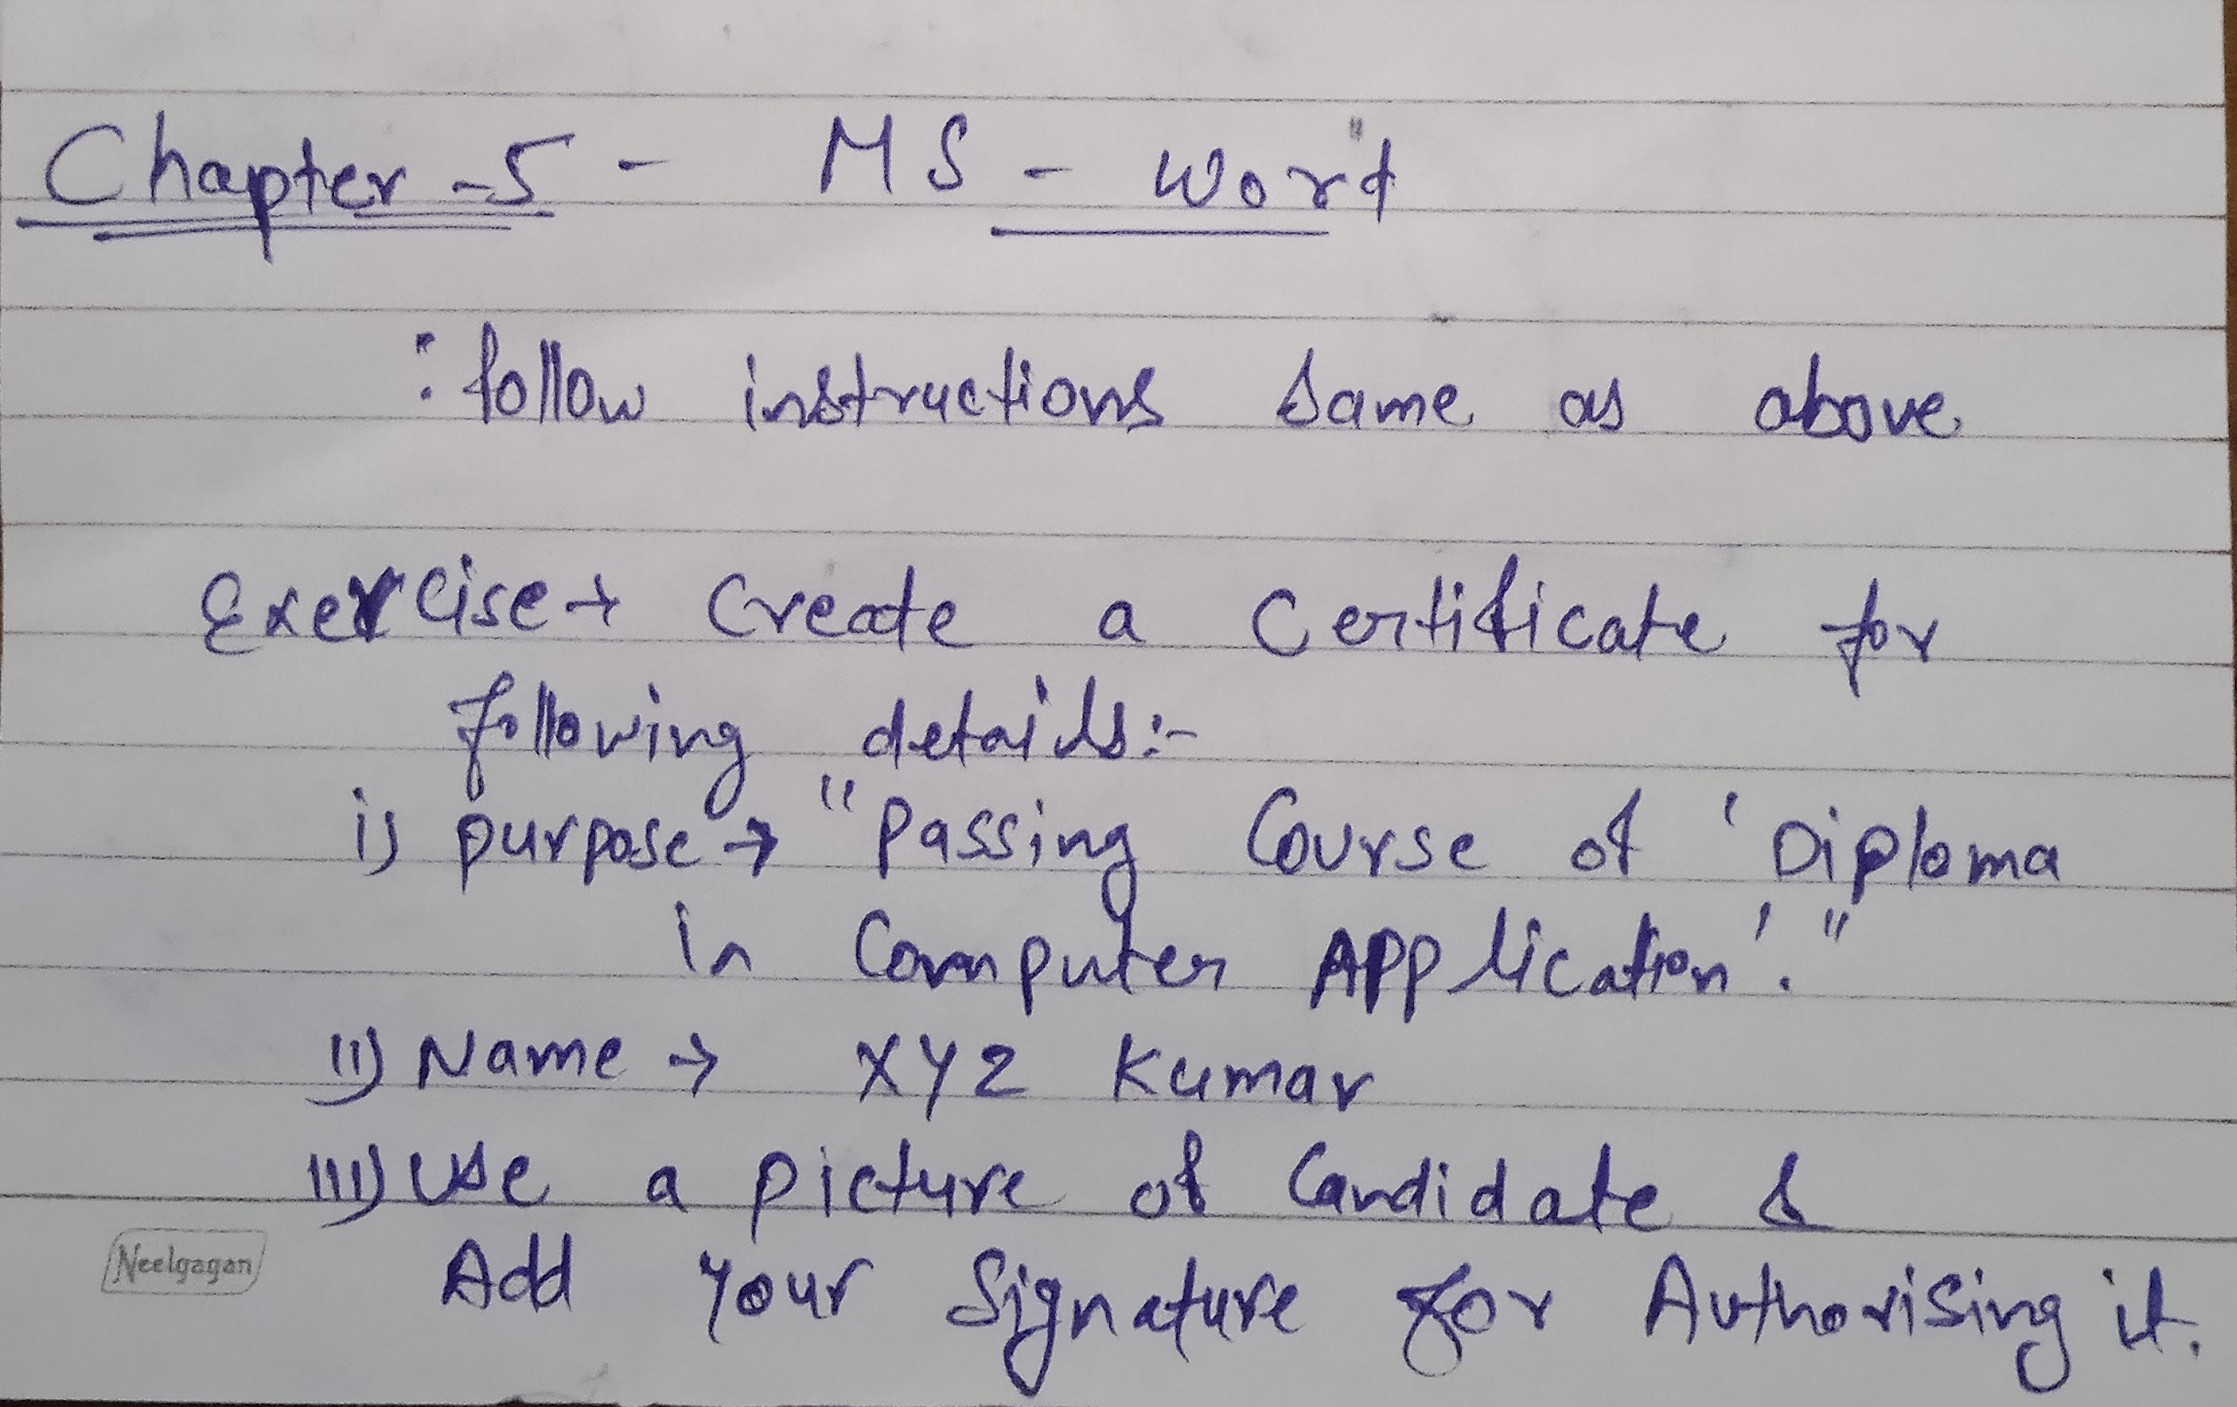 Chapter -5 - MS - Word
: follow instructions same as above
Exercise → Create a Certificate for
following details:-
i) purpose → "Passing Course of 'Diploma
in Computer Application'."
ii) Name → XYZ Kumar
iii) Use a picture of Candidate &
Add Your Signature for Authorising it.
Neelgagan